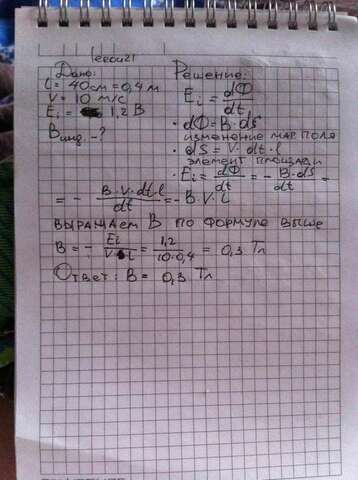 Дано:
Решение:
l = 40 см = 0,4 м
V = 10 м/с
Ei = 1,2 В
Bинд. - ?
Ei = dФ/dt
· dФ = B · dS
изменение маг. поля
· dS = V · dt · l
элемент площади
· Ei = dФ/dt = - B·dS/dt =
= - B·V·dt·l/dt = - B·V·l
Выражаем B по формуле выше
B = - Ei/V·l = 1,2/10·0,4 = 0,3 Тл
Ответ: B = 0,3 Тл